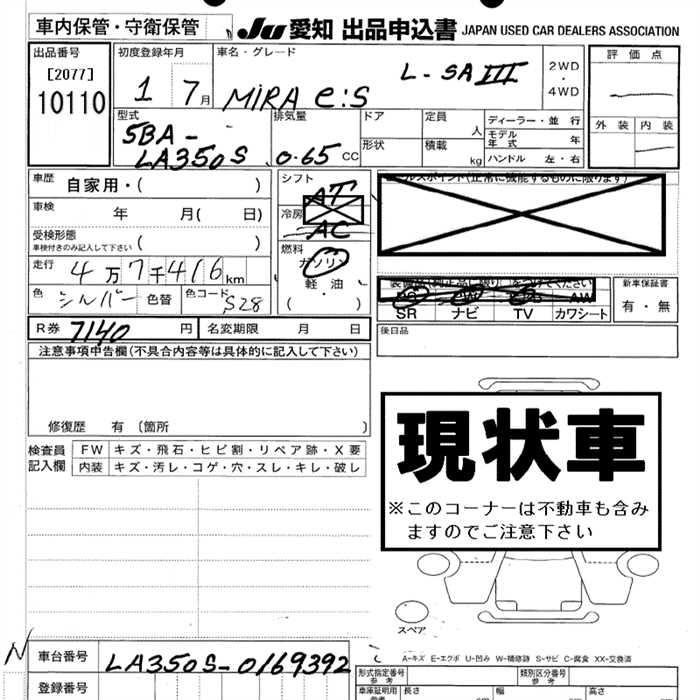 車内保管・守衛保管
JU 愛知 出品申込書 JAPAN USED CAR DEALERS ASSOCIATION
出品番号
[2077]
10110
初度登録年月
1 7月
車名・グレード
MIRA e:S L-SAIII
2WD
・
4WD
評価点
外装 内装
型式
5BA-
LA350S
排気量
0.65 cc
ドア
形状
定員 人
積載 kg
ディーラー・並行
モデル年式 年
ハンドル 左・右
車歴 自家用・( )
車検 年 月( 日)
受検形態
車検付きのみ記入して下さい ( )
走行 4万7千416km
色 シルバー 色替 色コード S28
シフト
AT
冷房
AC
燃料
ガソリン
軽油
( ・ )
(正常に機能するものに限ります)
SR ナビ TV カワシート
新車保証書
有・無
後日品
R券 7140 円 名変期限 月 日
注意事項申告欄(不具合内容等は具体的に記入して下さい)
修復歴 有 (箇所 )
検査員
記入欄
FW キズ・飛石・ヒビ割・リペア跡・X要
内装 キズ・汚レ・コゲ・穴・スレ・キレ・破レ
現状車
※このコーナーは不動車も含み
ますのでご注意下さい
スペア
A-キズ E-エクボ U-凹み W-補修跡 S-サビ C-腐食 XX-交換済
N
車台番号 LA350S-0169392
登録番号
形式指定番号
参考
類別区分番号
参考
車庫証明用
参考
長さ
幅
高さ